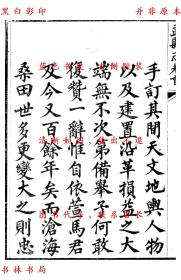 黑白影印
并非原本
手訂其間天文地輿人物
以及建置沿革損益之大
端無不次第備舉予何敢
後贊一辭惟自馬君
及今又百餘年矣而滄海
桑田世多更變大之則忠
书林书局